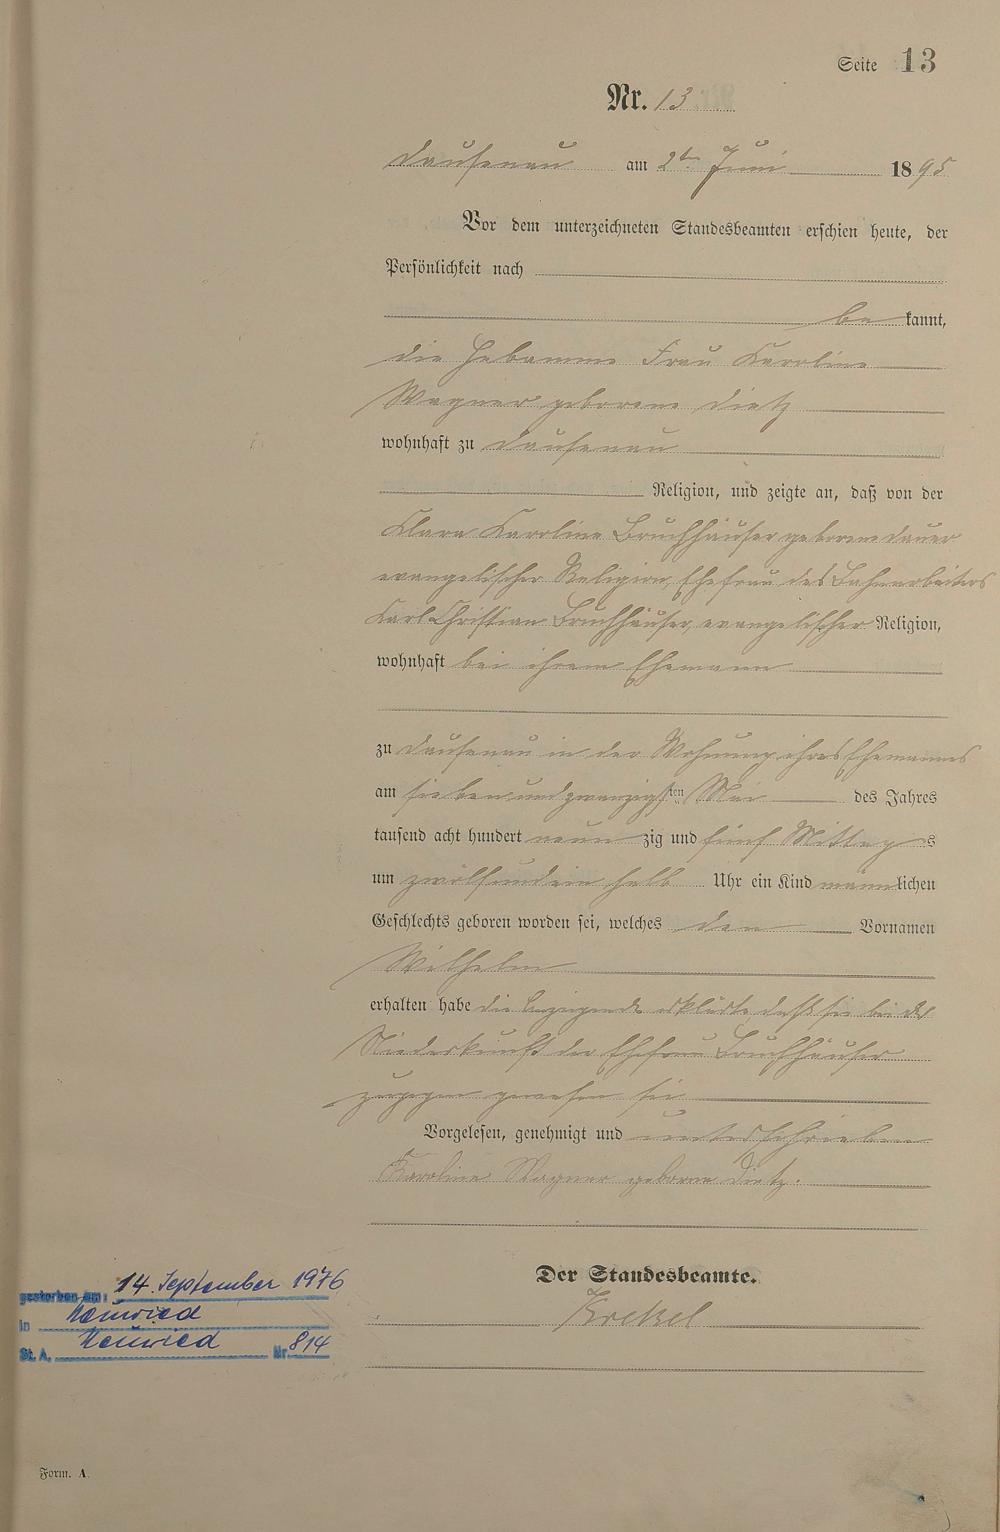 Seite 13
Nr. 13
Dausenau am 2ten Juni 1895
Vor dem unterzeichneten Standesbeamten erschien heute, der
Persönlichkeit nach
be kannt,
die Hebamme Frau Karoline
Wagner geborene Dietz
wohnhaft zu Dausenau
Religion, und zeigte an, daß von der
Klara Karoline Bruchhäuser geborene Dauer
evangelischer Religion, Ehefrau des Bahnarbeiters
Karl Christian Bruchhäuser, evangelischer Religion,
wohnhaft bei ihrem Ehemann
zu Dausenau in der Wohnung ihres Ehemannes
am siebenundzwanzigsten Mai des Jahres
tausend acht hundert neun zig und fünf Mittags
um zwölfundein halb Uhr ein Kind männlichen
Geschlechts geboren worden sei, welches den Vornamen
Wilhelm
erhalten habe die Anzeigende erklärte, daß sie bei der
Niederkunft der Ehefrau Bruchhäuser
zugegen gewesen sei
Vorgelesen, genehmigt und unterschrieben
Karoline Wagner geborene Dietz.
Der Standesbeamte.
Krekel
gestorben am: 14. September 1976
in Neuwied
St. A. Neuwied Nr. 814
Form. A.